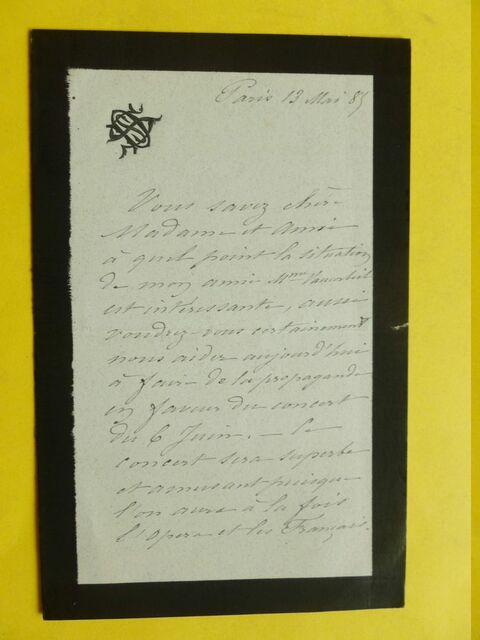 Paris 13 Mai 85
Vous savez chère
Madame et Amie
à quel point la situation
de mon amie Mme
est intéressante, aussi
voudrez-vous certainement
nous aider aujourd'hui
à faire de la propagande
en faveur du concert
du 6 Juin. — Le
concert sera superbe
et amusant puisque
l'on aura à la fois
l'Opera et les Français.